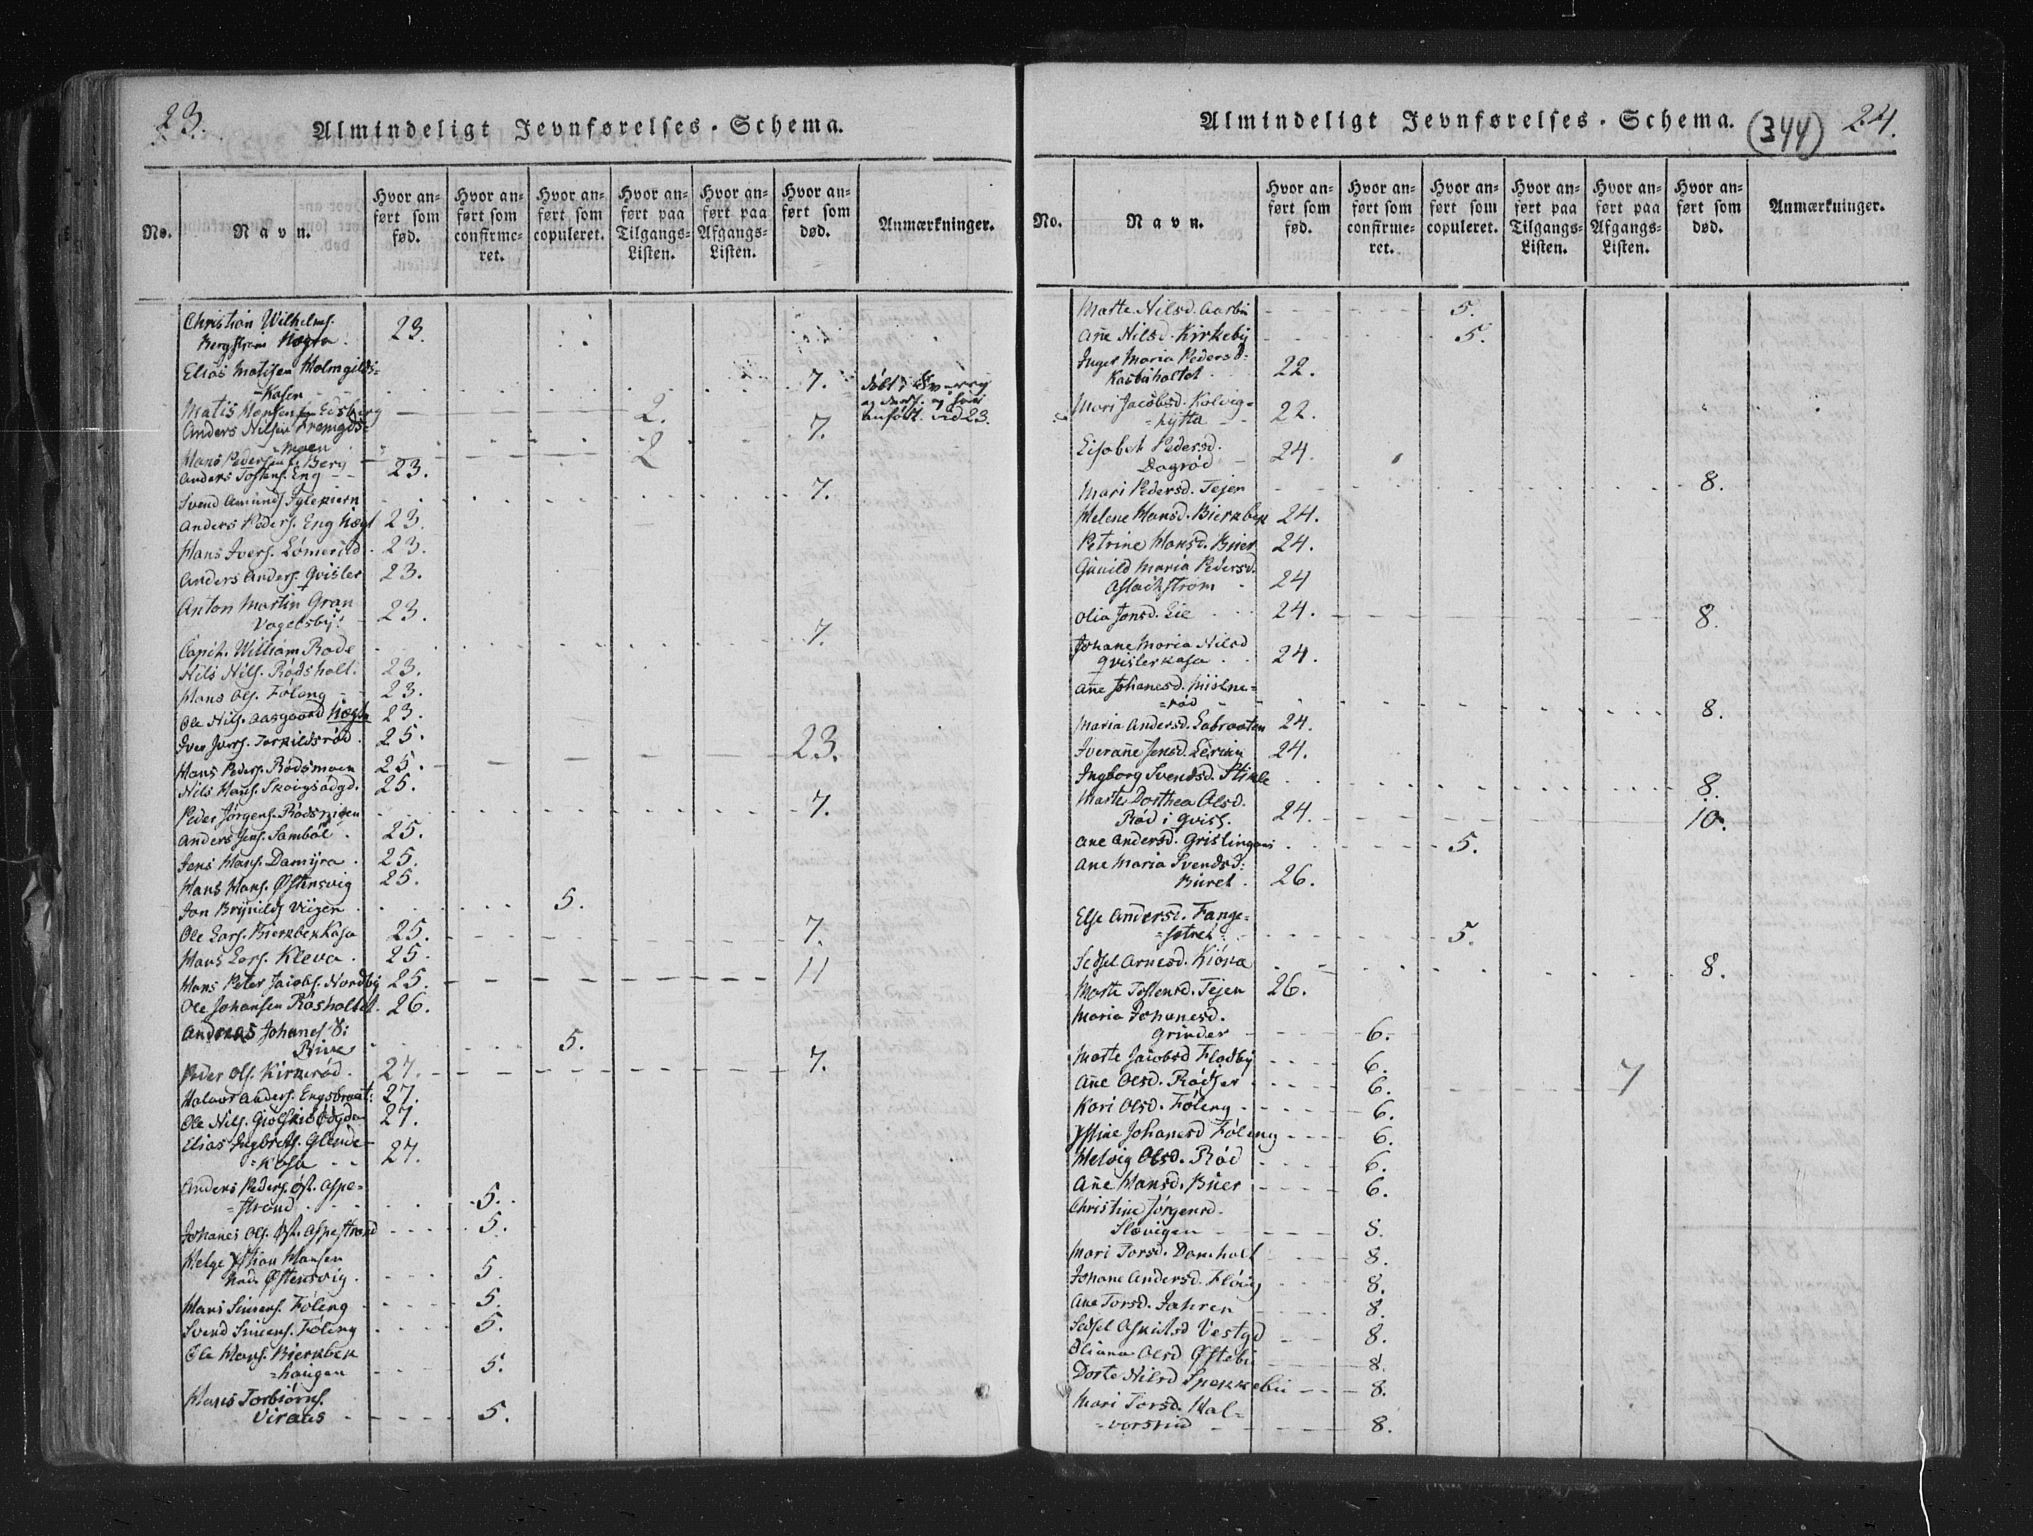 23.
Almindeligt Jevnførelses-Schema.
No.
Navn.
Hvor anført som født.
Hvor anført som confirmeret.
Hvor anført som copuleret.
Hvor anført paa Tilgangs-Listen.
Hvor anført paa Afgangs-Listen.
Hvor anført som død.
Anmærkninger.
Christian Wilhelms.
Bergstrøm 23.
Elias Matisen Holmgilds=
=Kasen 7.
og
anført. vid 23.
Matis Hansen Edsberg 2.
Anders Nilsen
=moen 7.
Hans Pedersen Berg 2
Anders Tostens. Eng 23.
Svend Amunds 7.
Anders Peders. Eng 23.
Hans Ivers. Lømerød. 23.
Anders Anders. Qvisler 23.
Anton Martin Gran
Vogelsby. 23.
Capit. William Rode 7.
Nils Nils. Rødsholt. 23.
Hans Ols. Føleng 23.
Ole Nils. Aasgaard 23.
Iver Ivers. Torkildsrød. 25. 23.
Hans Peders. Rødsmoen 25.
Nils Hans. 25.
Peder Jørgens. 7.
Anders Jens. Sambøl. 25.
Jens Hans. Damyra. 25.
Hans Hans. Østensvig 25.
Jon 5.
Ole Lars. Bierkbekkasa 25. 7.
Hans Lars. Kleva. 25. 11
Hans Peter Jacobs. Nordby 25.
Ole Johansen Råsholtet. 26.
Andreas Johanes 8:
5.
Peder Ols. Kirkerød. 27. 7.
Halvor Anders. Engebraat: 27.
Ole Nils. 27.
Elias Ingbrets. Glende=
=Kasa 27.
Anders Peders. Øst. Aspe=
=strand 5.
Johanes Ols. Øst. Aspestrand 5.
Helge Hansen
Østensvig. 5.
Hans Simens. Føleng 5.
Svend Simens. Føleng 5.
Ole Hans. Bierkbek
=haugen 5.
Hans Torbiørns.
Viraas 5.
Almindeligt Jevnførelses-Schema.
(344) 24.
No.
Navn.
Hvor anført som født.
Hvor anført som confirmeret.
Hvor anført som copuleret.
Hvor anført paa Tilgangs-Listen.
Hvor anført paa Afgangs-Listen.
Hvor anført som død.
Anmærkninger.
Marte Nilsd. Aasbu 5.
Ane Nilsd. Kirkeby 5.
Inger Maria Pedersd:
Kasbuholtet 22.
Mari Jacobsd. Kolvig=
=hytta 22.
Elisabet Pedersd.
Dagrød 24.
Mari Pedersd. Tejen 8.
Helene Hansd. Bierkbek 24.
Petrine Hansd. Buer 24.
Gunild Maria Pedersd.
Aslackstrøm 24
Olia Jensd. Lie 24. 8.
Johane Maria Nilsd
Qvislerkasa 24.
Ane Johanesd.
=rød 8.
Maria Andersd. Labraaten 24.
Iverane Jensd. 24.
Ingborg Svendsd. Stikle 8.
Marte Dorthea Olsd.
Rød i Qvisl. 24. 10.
Ane Andersd. 5.
Ane Maria Svendsd:
Buret. 26.
Else Andersd. Fange=
5.
Sidsel Arnesd. Kiøva 8.
Marte Tostensd. Tejen 26.
Maria Johanesd.
Grinder 6.
Marte Jacobsd Flødby 6.
Ane Olsd. Rødser 6. 7
Kari Olsd. Føleng 6.
Johanesd Føleng 6.
Helvig Olsd. Rød 6.
Ane Hansd. Buer 6.
Christine Jørgensd.
Slævigen 8.
Mari Torsd. Damholt 8.
Johane Andersd. Fløvig 8.
Ane Torsd. Jahren 8.
Sidsel Askildsd Vestgd 8.
Oliana Olsd Østebu 8.
Dorte Nilsd Spekkebu 8.
Mari Torsd. Hal=
=vorsrud 8.